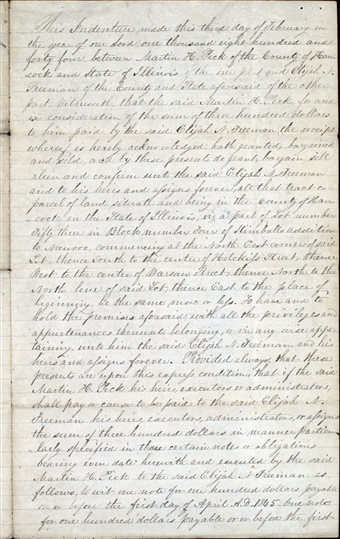 This Indenture, made this third day of February in
the year of our Lord one thousand eight hundred and
forty four between Martin H. Peck of the County of Han
cock and State of Illinois of the one part and Elijah N.
Freeman of the County and State aforesaid of the other
part. Witnesseth that the said Martin H. Peck for and
in consideration of the sum of three hundred dollars
to him paid by the said Elijah N. Freeman the receipt
whereof is hereby acknowledged hath granted, bargained
and sold, and by these presents do grant, bargain sell
alien and confirm unto the said Elijah N. Freeman
and to his heirs and assigns forever, all that tract or
parcel of land situate and being in the County of Han
cock in the State of Illinois, viz, a part of Lot number
fifty three in Block number four of Kimballs addition
to Nauvoo, commencing at the North East corner of said
Lot, thence South to the centre of Hotchkiss Street, thence
West to the centre of Warsaw Street, thence North to the
North line of said Lot, thence East to the place of
beginning, be the same more or less. To have and to
hold the premises aforesaid, with all the privileges and
appurtenances thereunto belonging, or in any wise apper
taining, unto him the said Elijah N. Freeman and his
heirs and assigns forever. Provided always that these
present are upon this express condition, that if the said
Martin H. Peck his heirs, executors or administrators,
shall pay or cause to be paid to the said Elijah N.
Freeman his heirs, executors, administrators, or assigns
the sum of three hundred dollars in manner particu
larly specified in three certain notes or obligations
bearing even date herewith and executed by the said
Martin H. Peck to the said Elijah N. Freeman as
follows, to wit one note for one hundred dollars payable
on or before the first day of April A.D. 1845. One note
for one hundred dollars payable on or before the first